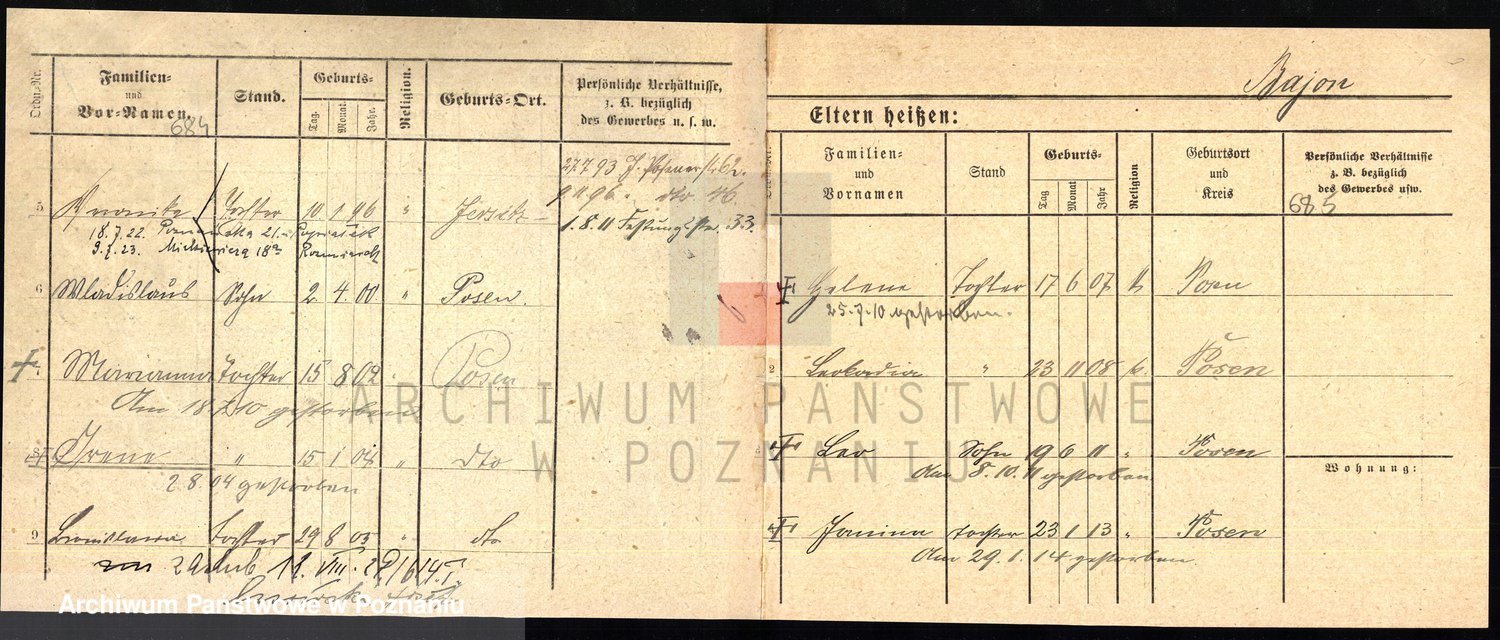 Ordn.-Nr.
Familien-
und
Vor-Namen.
684
Stand.
Geburts-
Tag. Monat. Jahr.
Religion.
Geburts-Ort.
Persönliche Verhältnisse,
z. B. bezüglich
des Gewerbes u. s. w.
27.7.93 J. Posenerstr. 62.
9 11 96 " dto 46.
1.8.11 Festungsstr. 33.
5 Veronika Tochter 10 1 96 " Jersitz
18.7.22.
9.7.23. Mickiewicza 18a
6 Wladislaus Sohn 2. 4. 00 " Posen.
7 Marianna Tochter 15 8 02 Posen
Am 18 7 10 gestorben
8 Irene " 15 1 04 " dto
2 8.04 gestorben
9 Bronislawa Tochter 29 8 05 " dto
Bajon
Eltern heißen:
Familien-
und
Vornamen
Stand
Geburts-
Tag Monat Jahr
Religion
Geburtsort
und
Kreis
Persönliche Verhältnisse
z. B. bezüglich
des Gewerbes usw.
685
Helene Tochter 17 6 07 k Posen
25.7.10 gestorben.
Leokadia " 23 11 08 k. Posen
Leo Sohn 19 6 11 " Posen
Am 8. 10. 11 gestorben
Wohnung:
Janina Tochter 23 1 13 " Posen
Am 29. 1. 14 gestorben.
ARCHIWUM PANSTWOWE
W POZNANIU
Archiwum Państwowe w Poznaniu